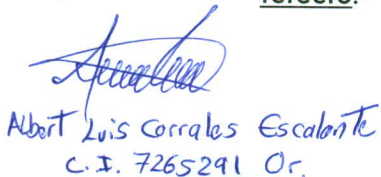 Albert Luis Corrales Escalante
C.I. 7265291 Or.